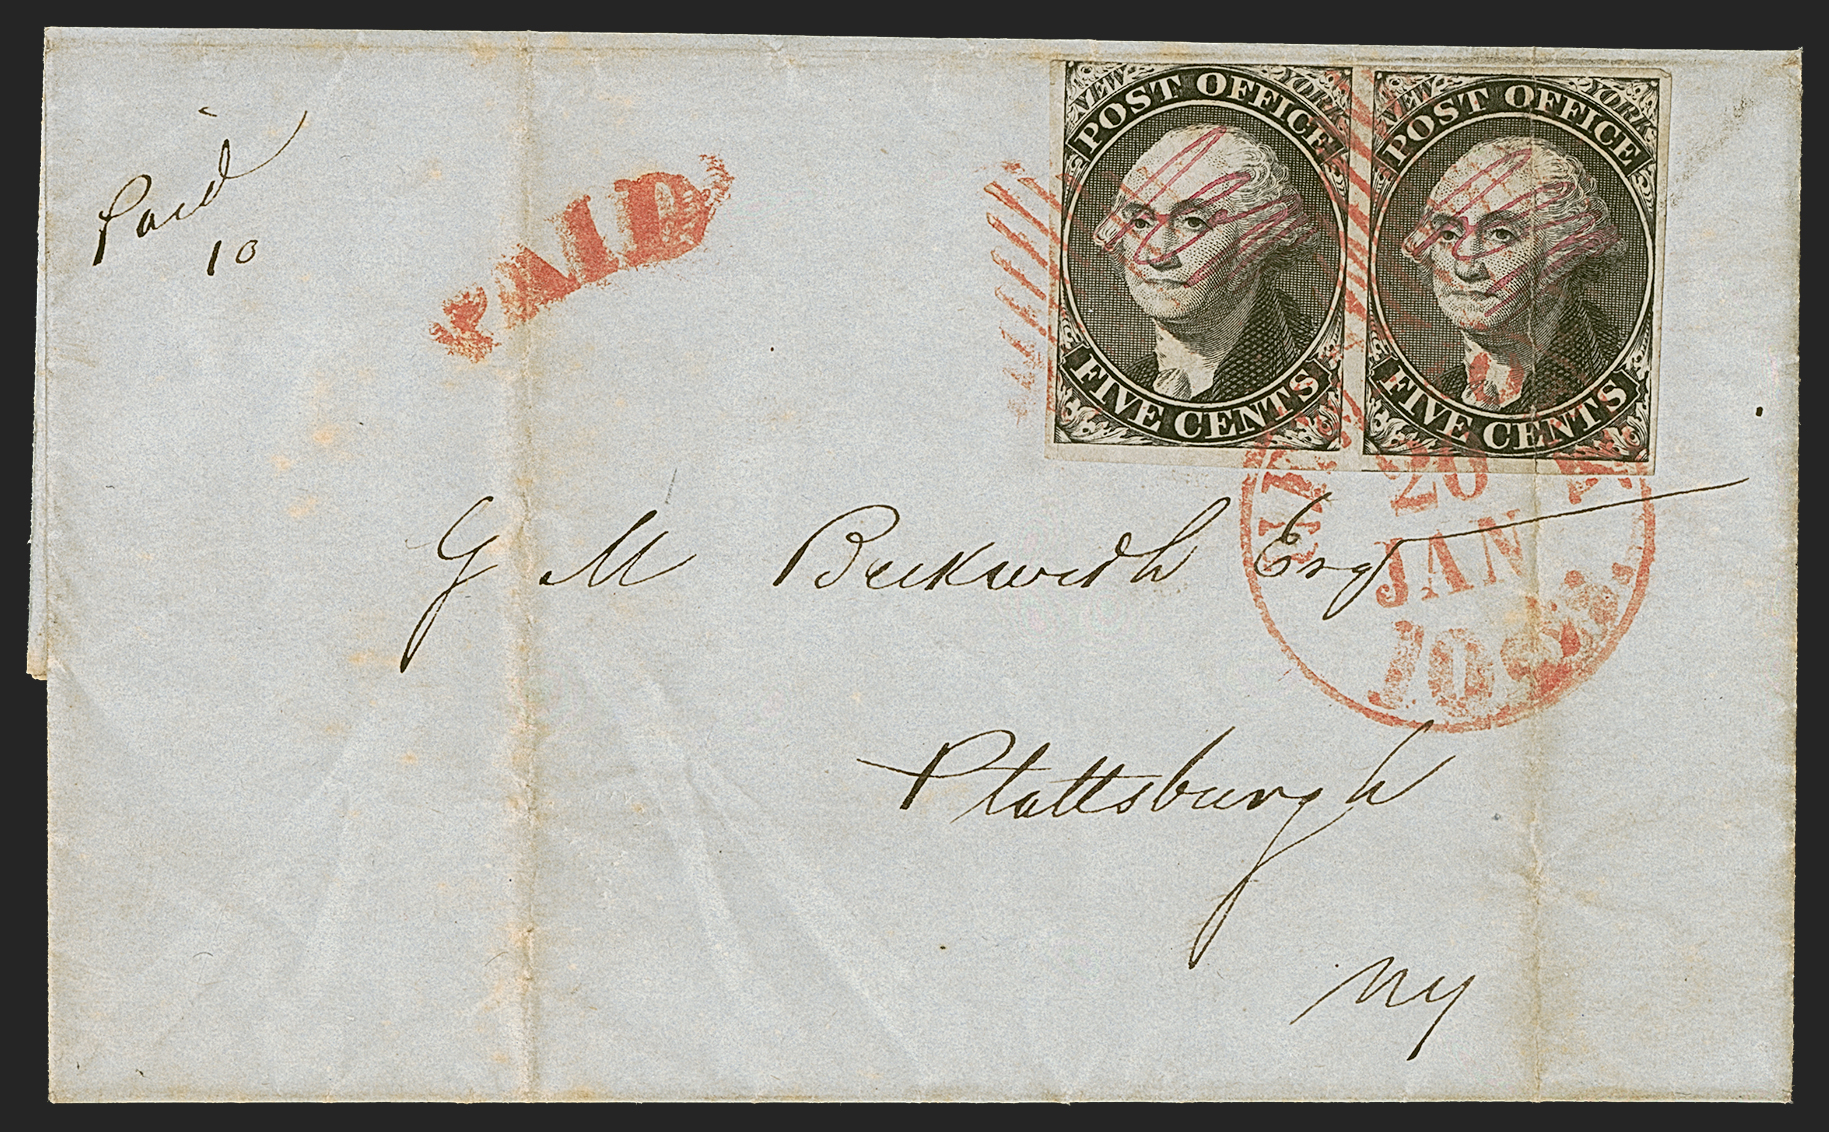 Paid
10
PAID
NEW YORK
POST OFFICE
FIVE CENTS
NEW YORK
POST OFFICE
FIVE CENTS
20
JAN
10
G M Beckwith Esq
Plattsburgh
NY